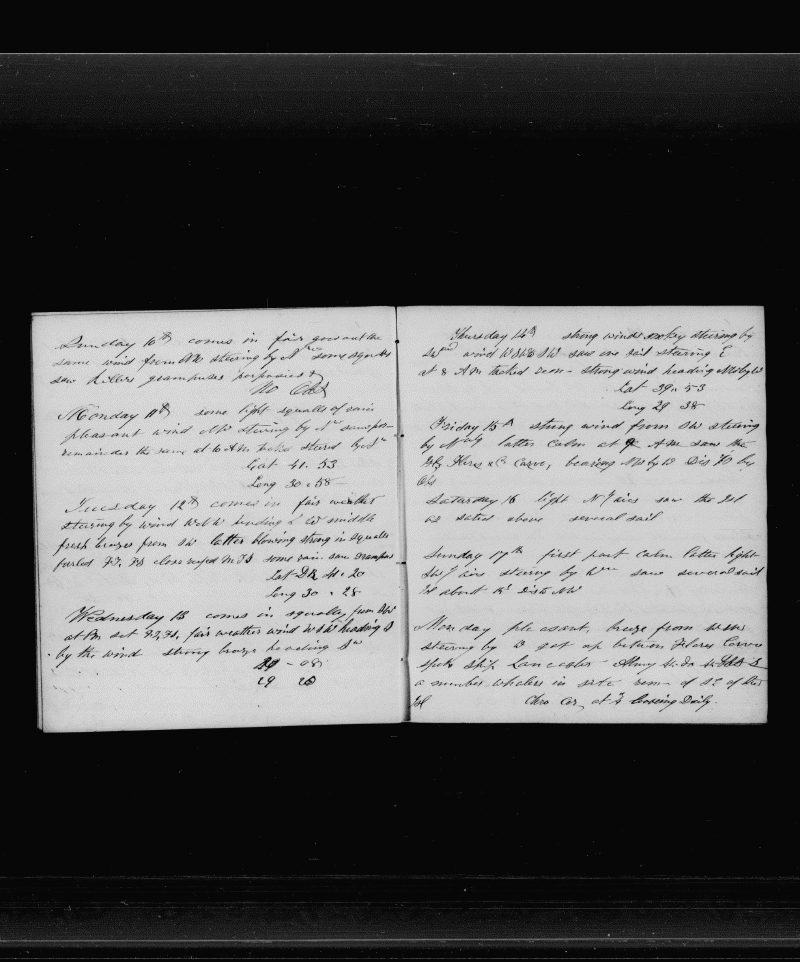 Sunday 10th comes in fair goes out the
same wind from NW steering by Nth some squalls
saw killers grampuses porpoises &
No Obs
Monday 11th some light squalls of rain
pleasant wind NW steering by Nth saw por-
remainder the same at 6 AM tacked steerd by
Lat 41. 53
Long 30. 58
Tuesday 12th comes in fair weather
steering by wind WNW heading SW middle
fresh breezes from SW latter blowing strong in squalls
furled close reefed some rain saw Grampus
Lat DR 41. 20
Long 30. 28
Wednesday 13 comes in squally from
at PM set fair weather wind WSW heading S
by the wind strong breeze heading
- 08
29
Thursday 14th strong winds steering by
wind WSW & SW saw one sail steering E
at 8 AM tacked rem- strong wind heading NW by W
Lat 39. 53
Long 29 38
Friday 15th strong wind from SW steering
by latter calm at 9 AM saw the
Flores & Corvo, bearing NW by W Dis by
Obs
Saturday 16 light airs saw the Isl
as stated above several sail
Sunday 17th first part calm latter light
airs steering by saw several sail
Isl about Dist NW
Monday pleasant breeze from WSW
steering by got up between Flores Corvo
spoke ship Lancaster
a number whalers in site rem- of
Isl at Cruising Daily.